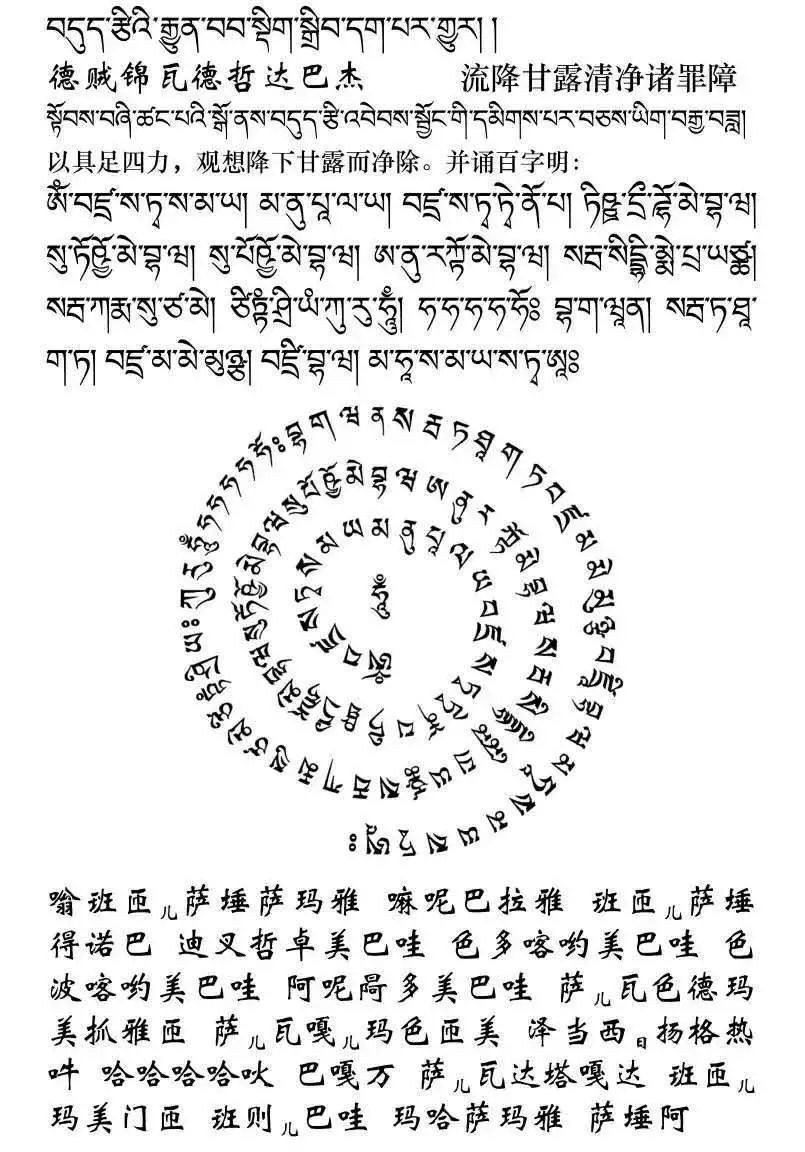 བདུད་རྩིའི་རྒྱུན་བབ་སྡིག་སྒྲིབ་དག་པར་གྱུར། །
德贼锦瓦德哲达巴杰 流降甘露清净诸罪障
སྟོབས་བཞི་ཚང་བའི་སྒོ་ནས་བདུད་རྩི་འབེབས་སྦྱོང་གི་དམིགས་པར་བཅས་ཡིག་བརྒྱ་བཟླ།
以具足四力，观想降下甘露而净除。并诵百字明：
ༀ་བཛྲ་ས་ཏྭ་ས་མ་ཡ། མ་ནུ་པཱ་ལ་ཡ། བཛྲ་ས་ཏྭ་ཏྭེ་ནོ་པ། ཏིཥྛ་དྲྀ་ཌྷོ་མེ་བྷ་ཝ།
སུ་ཏོཥྱོ་མེ་བྷ་ཝ། སུ་པོཥྱོ་མེ་བྷ་ཝ། ཨ་ནུ་རཀྟོ་མེ་བྷ་ཝ། སརྦ་སིདྡྷི་མྨེ་པྲ་ཡཙྪ།
སརྦ་ཀརྨ་སུ་ཙ་མེ། ཙིཏྟཾ་ཤྲི་ཡཾ་ཀུ་རུ་ཧཱུྃ། ཧ་ཧ་ཧ་ཧ་ཧོཿ བྷ་ག་ཝཱན། སརྦ་ཏ་ཐཱ་
ག་ཏ། བཛྲ་མ་མེ་མུཉྩ། བཛྲི་བྷ་ཝ། མ་ཧཱ་ས་མ་ཡ་ས་ཏྭ་ཨཱཿ
ཧཱུྃ
嗡班匝儿萨埵萨玛雅 嘛呢巴拉雅 班匝儿萨埵
得诺巴 迪叉哲卓美巴哇 色多喀哟美巴哇 色
波喀哟美巴哇 阿呢阿多美巴哇 萨儿瓦色德玛
美抓雅匝 萨儿瓦嘎儿玛色匝美 泽当西日扬格热
吽 哈哈哈哈吙 巴嘎万 萨儿瓦达塔嘎达 班匝儿
玛美门匝 班则儿巴哇 玛哈萨玛雅 萨埵阿